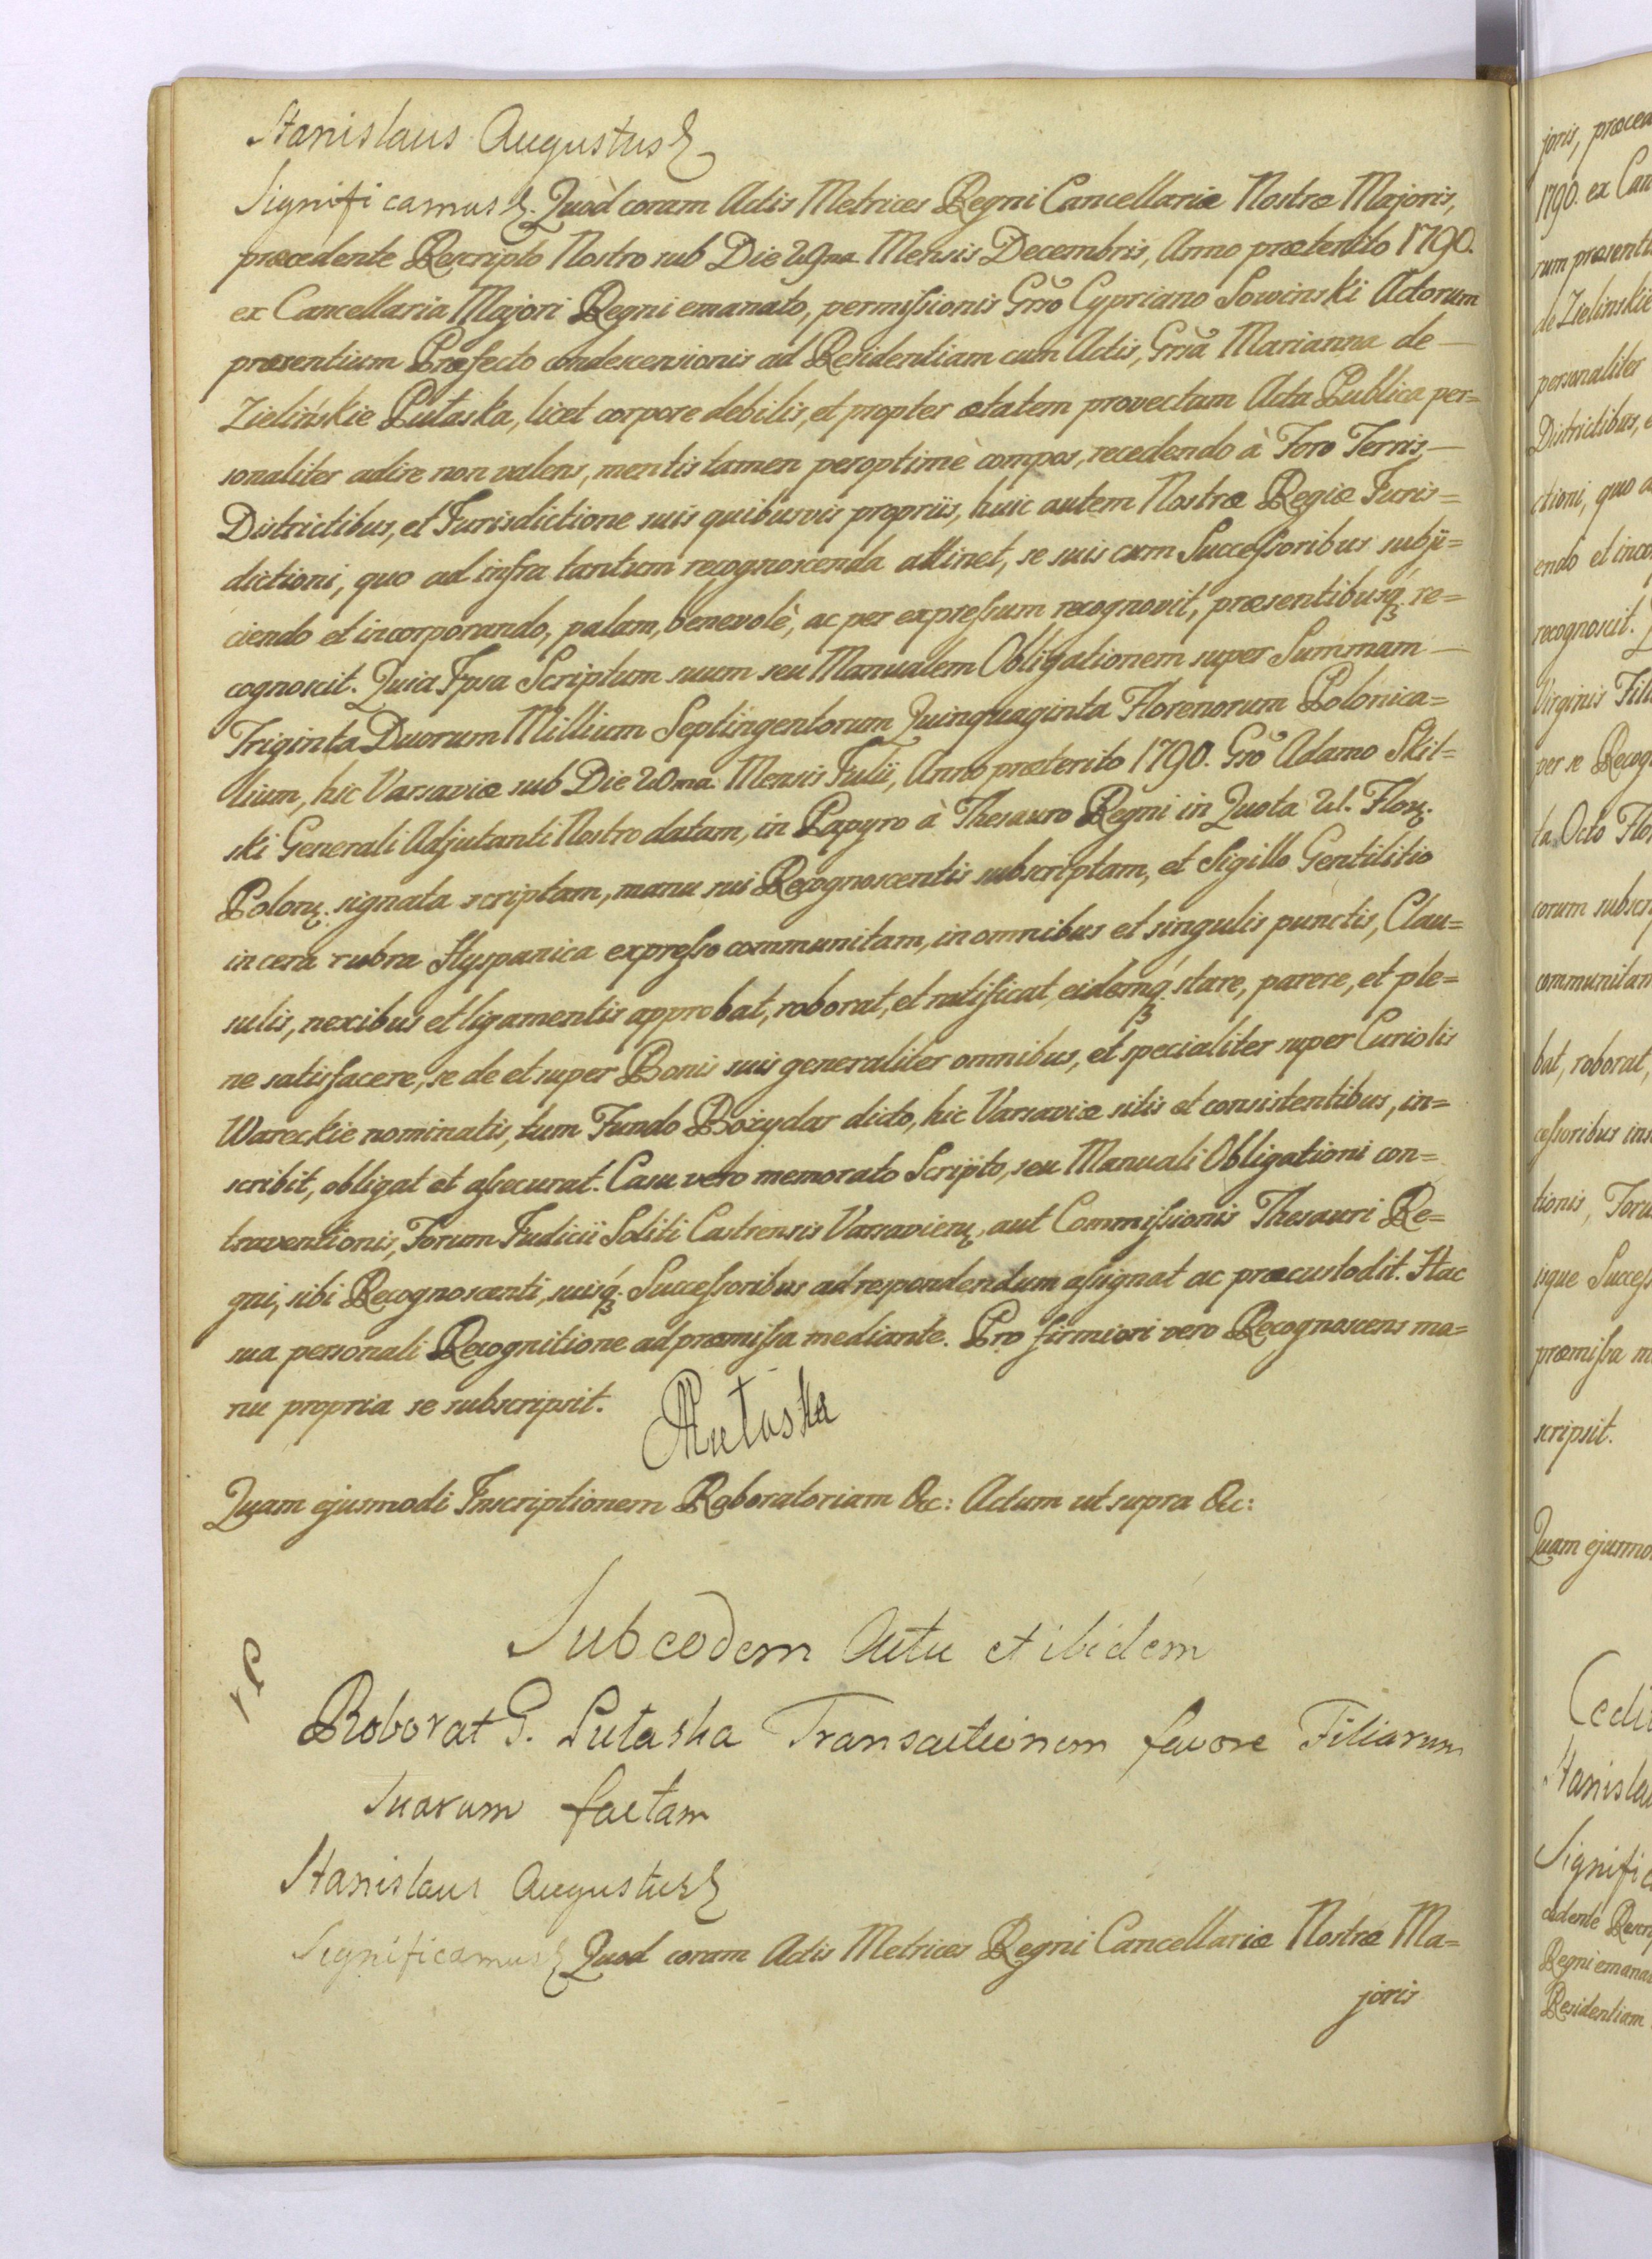 Stanislaus Augustus &
Significamus &. Quòd coram Actis Metrices Regni Cancellariæ Nostræ Majoris,
præcedente Rescripto Nostro sub Die 29na Mensis Decembris, Anno præterito 1790.
ex Cancellaria Majori Regni emanato, permissionis Grso Cypriano Sowinski Actorum
præsentium Præfecto condescensionis ad Residentiam cum Actis, Grsa Marianna de
Zielińskie Pułaska, licet corpore debilis, et propter ætatem provectam Acta Publica per=
sonaliter adire non valens, mentis tamen peroptimè compos, recedendo à Foro Terris,
Districtibus, et Jurisdictione suis quibusvis propriis, huic autem Nostræ Regiæ Juris=
dictioni, quo ad infra tantum recognoscenda attinet, se suis cum Successoribus subji=
ciendo et incorporando, palam, benevolè, ac per expressum recognovit, præsentibusq́ꝫ re=
cognoscit. Quia Ipsa Scriptum suum seu Manualem Obligationem super Summam
Triginta Duorum Millium Septingentorum Quinquaginta Florenorum Polonica=
lium, hic Varsaviæ sub Die 20ma Mensis Julii, Anno præterito 1790. Gso Adamo Skil=
ski Generali Adjutanti Nostro datam, in Papyro à Thesauro Regni in Quota Flor.
Polon. signata scriptam, manu sui Recognoscentis subscriptam, et Sigillo Gentilitio
in cera rubra Hyspanica expresso communitam, in omnibus et singulis punctis, Clau=
sulis, nexibus et ligamentis approbat, roborat, et ratificat, eidemq́ꝫ stare, parere, et ple=
ne satisfacere, se de et super Bonis suis generaliter omnibus, et specialiter super Curiolis
Wareckie nominatis, tum Fundo Bożydar dicto, hic Varsaviæ sitis et consistentibus, in=
scribit, obligat et assecurat. Casu vero memorato Scripto, seu Manuali Obligationi con=
traventionis, Forum Judicii Soliti Castrensis Varsavien. aut Commissionis Thesauri Re=
gni, sibi Recognoscenti, suisq́ꝫ Successoribus ad respondendum assignat ac præcustodit. Hac
sua personali Recognitione ad præmissa mediante. Pro firmiori vero Recognoscens ma=
nu propria se subscripsit.
MPułaska
Quam ejusmodi Inscriptionem Roboratoriam &c: Actum ut supra &c:
Sub eodem Actu et ibidem
Roborat G. Pułaska Transactionem favore Filiarum
suarum factam
Stanislaus Augustus &
Significamus & Quod coram Actis Metrices Regni Cancellariæ Nostræ Ma=
joris
joris, præced
1790. ex Can
rum præsenti
de Zielinskie
personaliter
Districtibus, e
ctioni, quo a
endo et inco
recognoscit.
Virginis Filia
per se Recog
ta Octo Flo
corum subscr
communitam
bat, roborat,
cessoribus ins
tionis, Foru
sque Success
præmissa m
scripsit.
Quam ejusmo
Cedi
Stanisla
Signific
cedente Rescrip
Regni emana
Residentiam